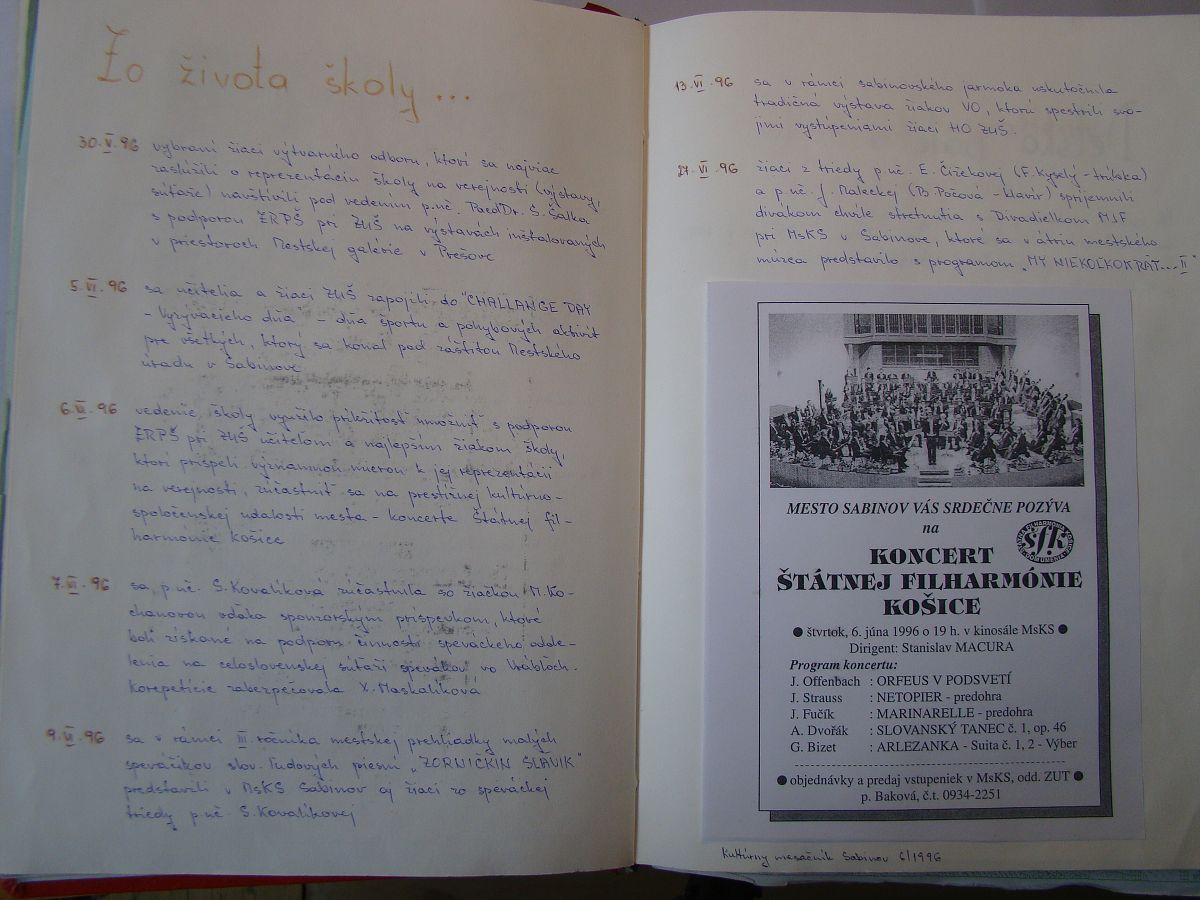 Zo života školy...
30.V.96 vybraní žiaci výtvarného odboru, ktorí sa najviac
zaslúžili o reprezentáciu školy na verejnosti (výstavy,
súťaže) navštívili pod vedením p.uč. PaedDr. Š. Šalka
s podporou ZRPŠ pri ZUŠ na výstavách inštalovaných
v priestoroch Mestskej galérie v Prešove
5.VI.96 sa učitelia a žiaci ZUŠ zapojili do "CHALLANGE DAY
- Vyzývacieho dňa" - dňa športu a pohybových aktivít
pre všetkých, ktorý sa konal pod záštitou Mestského
úradu v Sabinove
6.VI.96 vedenie školy využilo príležitosť umožniť s podporou
ZRPŠ pri ZUŠ učiteľom a najlepším žiakom školy,
ktorí prispeli významnou mierou k jej reprezentácii
na verejnosti, zúčastniť sa na prestížnej kultúrno-
spoločenskej udalosti mesta - koncerte Štátnej fil-
harmónie Košice
7.VI.96 sa p.uč. S. Kovalíková zúčastnila so žiačkou M. Ko-
chanovou vďaka sponzorským príspevkom, ktoré
boli získané na podporu činnosti speváckeho odde-
lenia na celoslovenskej súťaži spevákov vo Vrábľoch.
Korepetície zabezpečovala X. Maskalíková
9.VI.96 sa v rámci III. ročníka mestskej prehliadky malých
speváčikov slov. ľudových piesní „ZORNIČKIN SLÁVIK"
predstavili v MsKS Sabinov aj žiaci zo speváckej
triedy p.uč. S. Kovalíkovej
13.VI.96 sa v rámci sabinovského jarmoka uskutočnila
tradičná výstava žiakov VO, ktorú spestrili svo-
jimi vystúpeniami žiaci HO ZUŠ.
27.VI.96 žiaci z triedy p.uč. E. Čižekovej (F. Kyselý - trúbka)
a p.uč. J. Maleckej (B. Počová - klavír) spríjemnili
divákom chvíle stretnutia s Divadielkom MJF
pri MsKS v Sabinove, ktoré sa v átriu mestského
múzea predstavilo s programom „MY NIEKOĽKOKRÁT... II"
MESTO SABINOV VÁS SRDEČNE POZÝVA
na
ŠTÁTNA FILHARMÓNIA KOŠICE
šfk
KONCERT
ŠTÁTNEJ FILHARMÓNIE
KOŠICE
● štvrtok, 6. júna 1996 o 19 h. v kinosále MsKS ●
Dirigent: Stanislav MACURA
Program koncertu:
J. Offenbach : ORFEUS V PODSVETÍ
J. Strauss : NETOPIER - predohra
J. Fučík : MARINARELLE - predohra
A. Dvořák : SLOVANSKÝ TANEC č. 1, op. 46
G. Bizet : ARLEZANKA - Suita č. 1, 2 - Výber
● objednávky a predaj vstupeniek v MsKS, odd. ZUT ●
p. Baková, č.t. 0934-2251
Kultúrny mesačník Sabinov 6/1996